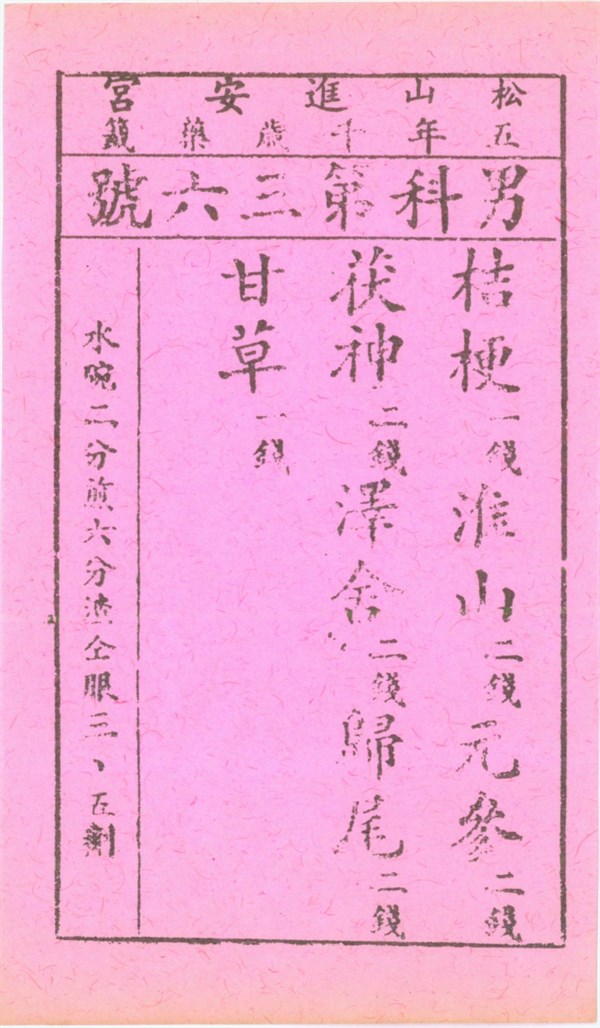 松山進安宮
五年千歲藥籤
男科第三六號
桔梗一錢 淮山二錢 元參二錢
茯神二錢 澤舍二錢 歸尾二錢
甘草一錢
水碗二分煎六分渣仝服三、五劑